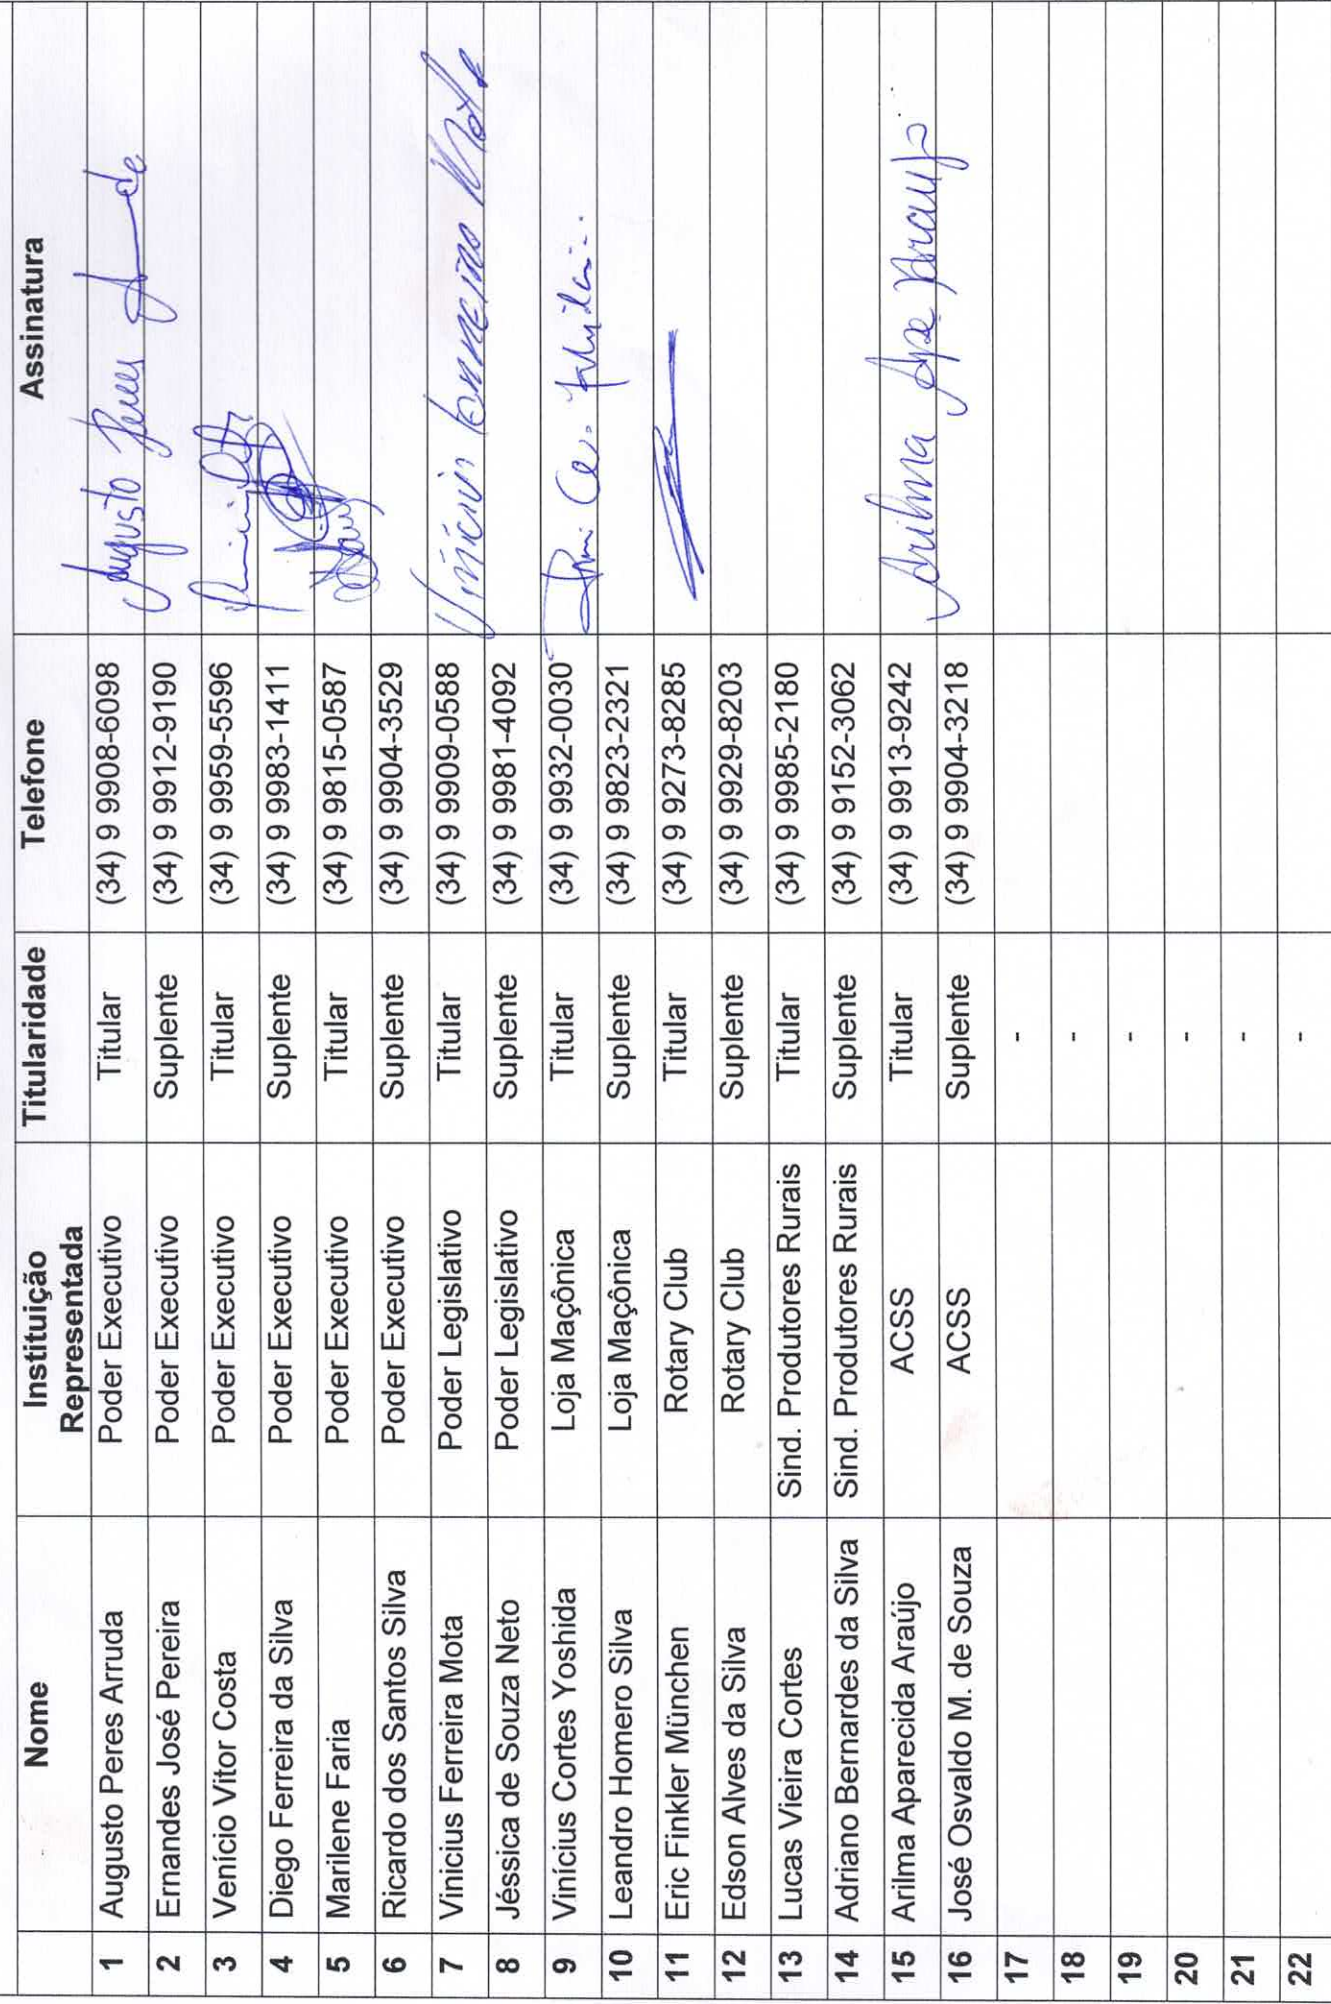 Nome Instituição Representada Titularidade Telefone Assinatura
1 Augusto Peres Arruda Poder Executivo Titular (34) 9 9908-6098 Augusto Peres
2 Ernandes José Pereira Poder Executivo Suplente (34) 9 9912-9190
3 Venício Vitor Costa Poder Executivo Titular (34) 9 9959-5596
4 Diego Ferreira da Silva Poder Executivo Suplente (34) 9 9983-1411
5 Marilene Faria Poder Executivo Titular (34) 9 9815-0587
6 Ricardo dos Santos Silva Poder Executivo Suplente (34) 9 9904-3529
7 Vinicius Ferreira Mota Poder Legislativo Titular (34) 9 9909-0588 Vinícius Ferreira Mota
8 Jéssica de Souza Neto Poder Legislativo Suplente (34) 9 9981-4092
9 Vinícius Cortes Yoshida Loja Maçônica Titular (34) 9 9932-0030
10 Leandro Homero Silva Loja Maçônica Suplente (34) 9 9823-2321
11 Eric Finkler München Rotary Club Titular (34) 9 9273-8285
12 Edson Alves da Silva Rotary Club Suplente (34) 9 9929-8203
13 Lucas Vieira Cortes Sind. Produtores Rurais Titular (34) 9 9985-2180
14 Adriano Bernardes da Silva Sind. Produtores Rurais Suplente (34) 9 9152-3062
15 Arilma Aparecida Araújo ACSS Titular (34) 9 9913-9242 Arilma Apª Araujo
16 José Osvaldo M. de Souza ACSS Suplente (34) 9 9904-3218
17 -
18 -
19 -
20 -
21 -
22 -